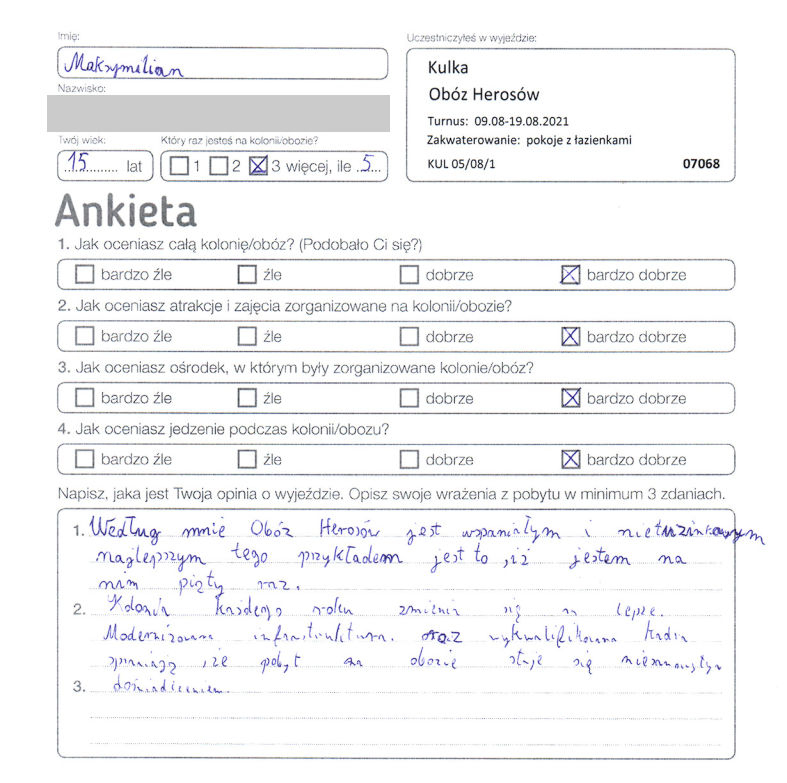 Imię:
Maksymilian
Nazwisko:
Twój wiek:
15 lat
Który raz jesteś na kolonii/obozie?
1 2 3 więcej, ile 5
Uczestniczyłeś w wyjeździe:
Kulka
Obóz Herosów
Turnus: 09.08-19.08.2021
Zakwaterowanie: pokoje z łazienkami
KUL 05/08/1 07068
Ankieta
1. Jak oceniasz całą kolonię/obóz? (Podobało Ci się?)
bardzo źle źle dobrze bardzo dobrze
2. Jak oceniasz atrakcje i zajęcia zorganizowane na kolonii/obozie?
bardzo źle źle dobrze bardzo dobrze
3. Jak oceniasz ośrodek, w którym były zorganizowane kolonie/obóz?
bardzo źle źle dobrze bardzo dobrze
4. Jak oceniasz jedzenie podczas kolonii/obozu?
bardzo źle źle dobrze bardzo dobrze
Napisz, jaka jest Twoja opinia o wyjeździe. Opisz swoje wrażenia z pobytu w minimum 3 zdaniach.
1. Według mnie Obóz Herosów jest wspaniałym i nietuzinkowym
najlepszym tego przykładem jest to ,iż jestem na
nim piąty raz.
2. Kolonia każdego roku zmienia się na lepsze.
Modernizowana infrastruktura. oraz wykwalifikowana kadra
sprawiają ,że pobyt na obozie staje się niesamowitym
3. doświadczeniem.